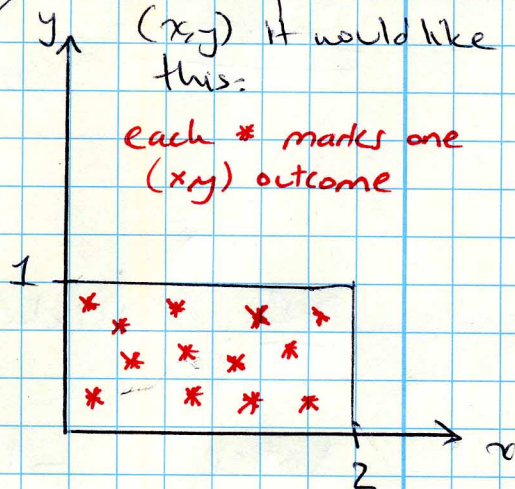 y (x,y) it would like
this:
each * marks one
(x,y) outcome
1
x
2